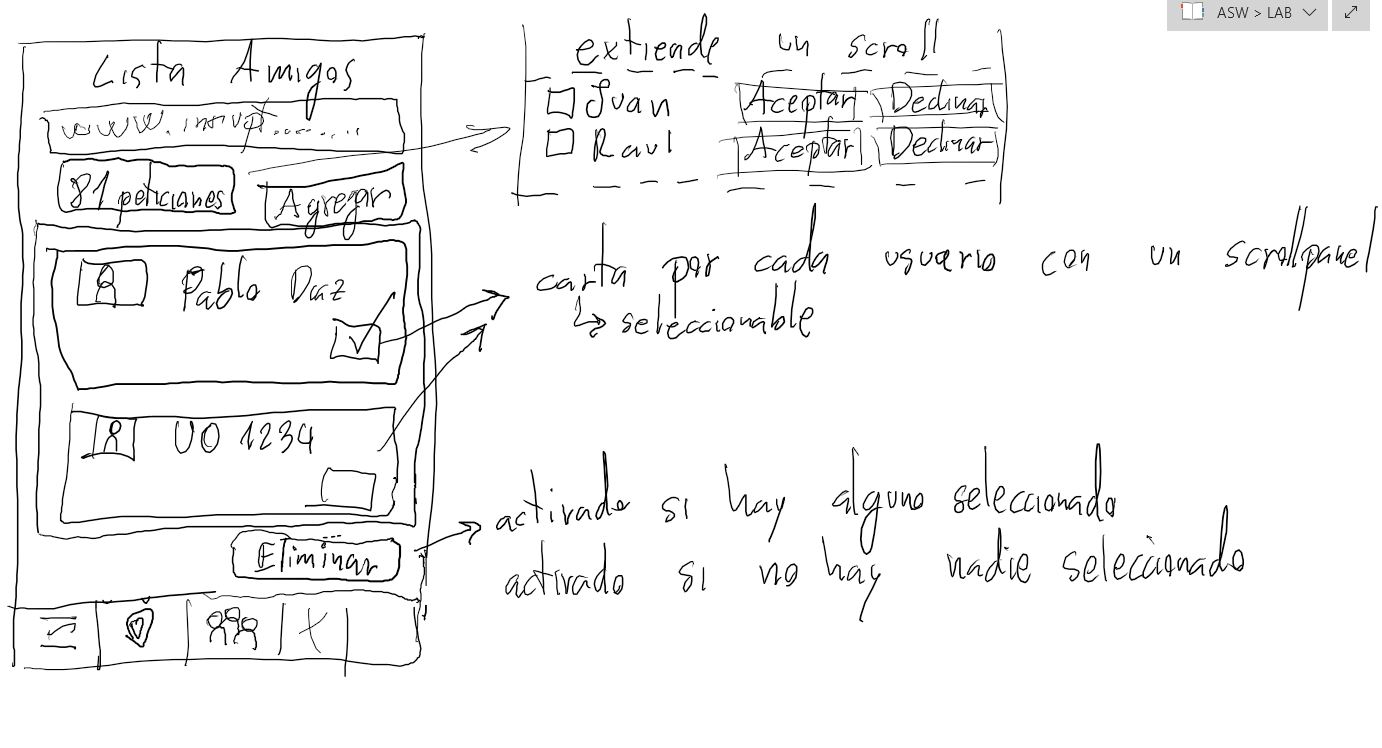 ASW > LAB
Lista Amigos
www.inrupt.......
81 peticiones
Agregar
Pablo Diaz
UO 1234
Eliminar
extiende un scroll
Juan Aceptar Declinar
Raul Aceptar Declinar
carta por cada usuario con un scrollpanel
seleccionable
activado si hay alguno seleccionado
activado si no hay nadie seleccionado